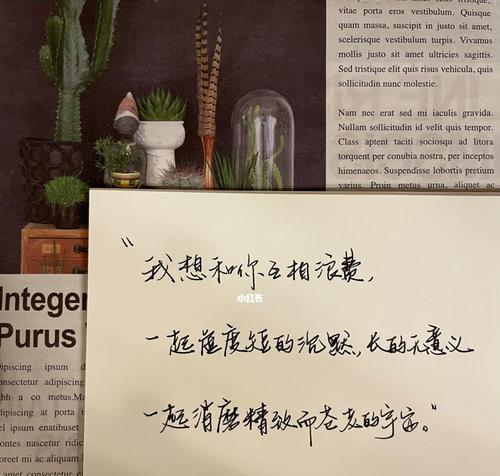 vitae porta eros vestibulum. Quisque
quam massa, suscipit in justo sit amet,
scelerisque vestibulum turpis. Vivamus
mollis justo sit amet ultricies sagittis.
Sed tristique elit quis risus vehicula, quis
sollicitudin nunc molestie.
Nam nec erat sed mi iaculis gravida.
Nullam sollicitudin id velit quis tempor.
Class aptent taciti sociosqu ad litora
torquent per conubia nostra, per inceptos
himenaeos. Suspendisse lobortis pretium
varius. Proin metus urna, aliquet ac
“我想和你互相浪费,
小红书
一起虚度短的沉默,长的无意义
一起消磨精致而苍老的宇宙。”
Integer
Purus
ipsum
adipiscing
a co metus.Ma
at porta
ipsum
nascetur
mi ac aliquam
amet consectetur